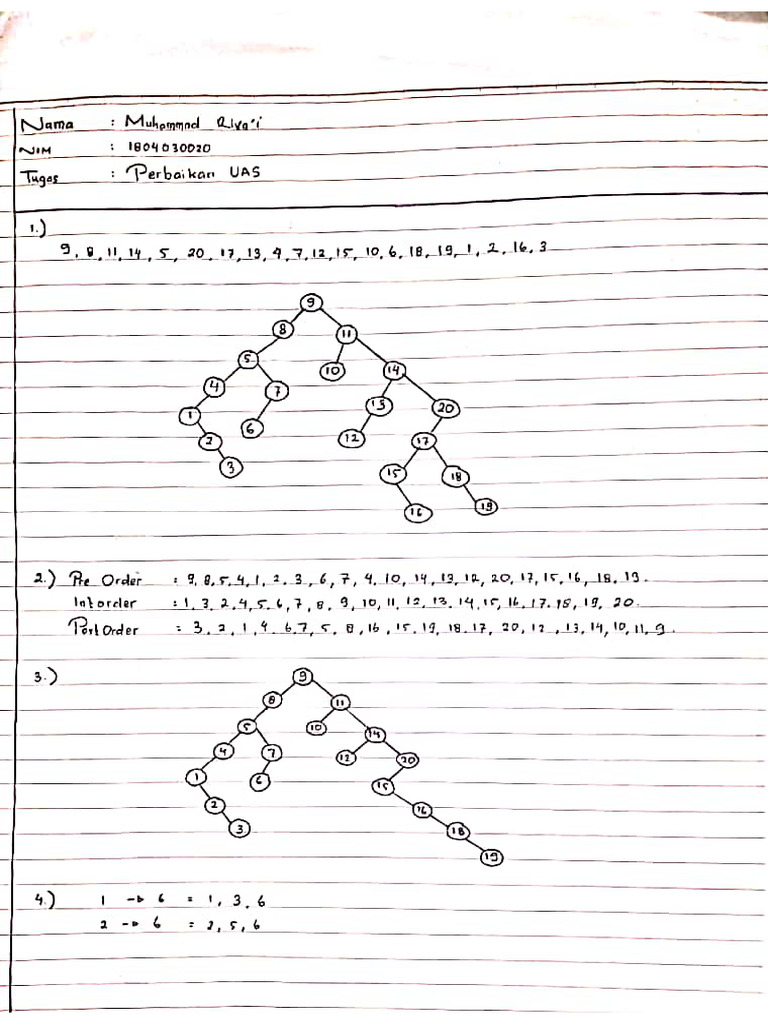 Nama : Muhammad Riva'i
NIM : 1804030020
Tugas : Perbaikan UAS
1.)
9, 8, 11, 14, 5, 20, 17, 13, 4, 7, 12, 15, 10, 6, 18, 19, 1, 2, 16, 3
9
8 11
5 10 14
4 7 13 20
1 6 12 17
2
3 15 18
16 19
2.) Pre Order : 9, 8, 5, 4, 1, 2, 3, 6, 7, 4, 10, 14, 13, 12, 20, 17, 15, 16, 18, 19.
Intorder : 1, 3, 2, 4, 5, 6, 7, 8, 9, 10, 11, 12, 13, 14, 15, 16, 17, 18, 19, 20.
Post Order : 3, 2, 1, 4, 6, 7, 5, 8, 16, 15, 19, 18, 17, 20, 12, 13, 14, 10, 11, 9.
3.)
9
8 11
5 10 14
4 7 12 20
1 6 15
2 16
3 18
19
4.) 1 → 6 = 1, 3, 6
2 → 6 = 2, 5, 6